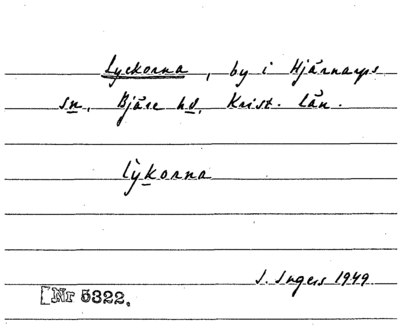 Lyckorna, by i Hjärnarps
sn, Bjäre hd, Krist. län.
lỳkorna
I. Ingers 1949
Nr 5322.